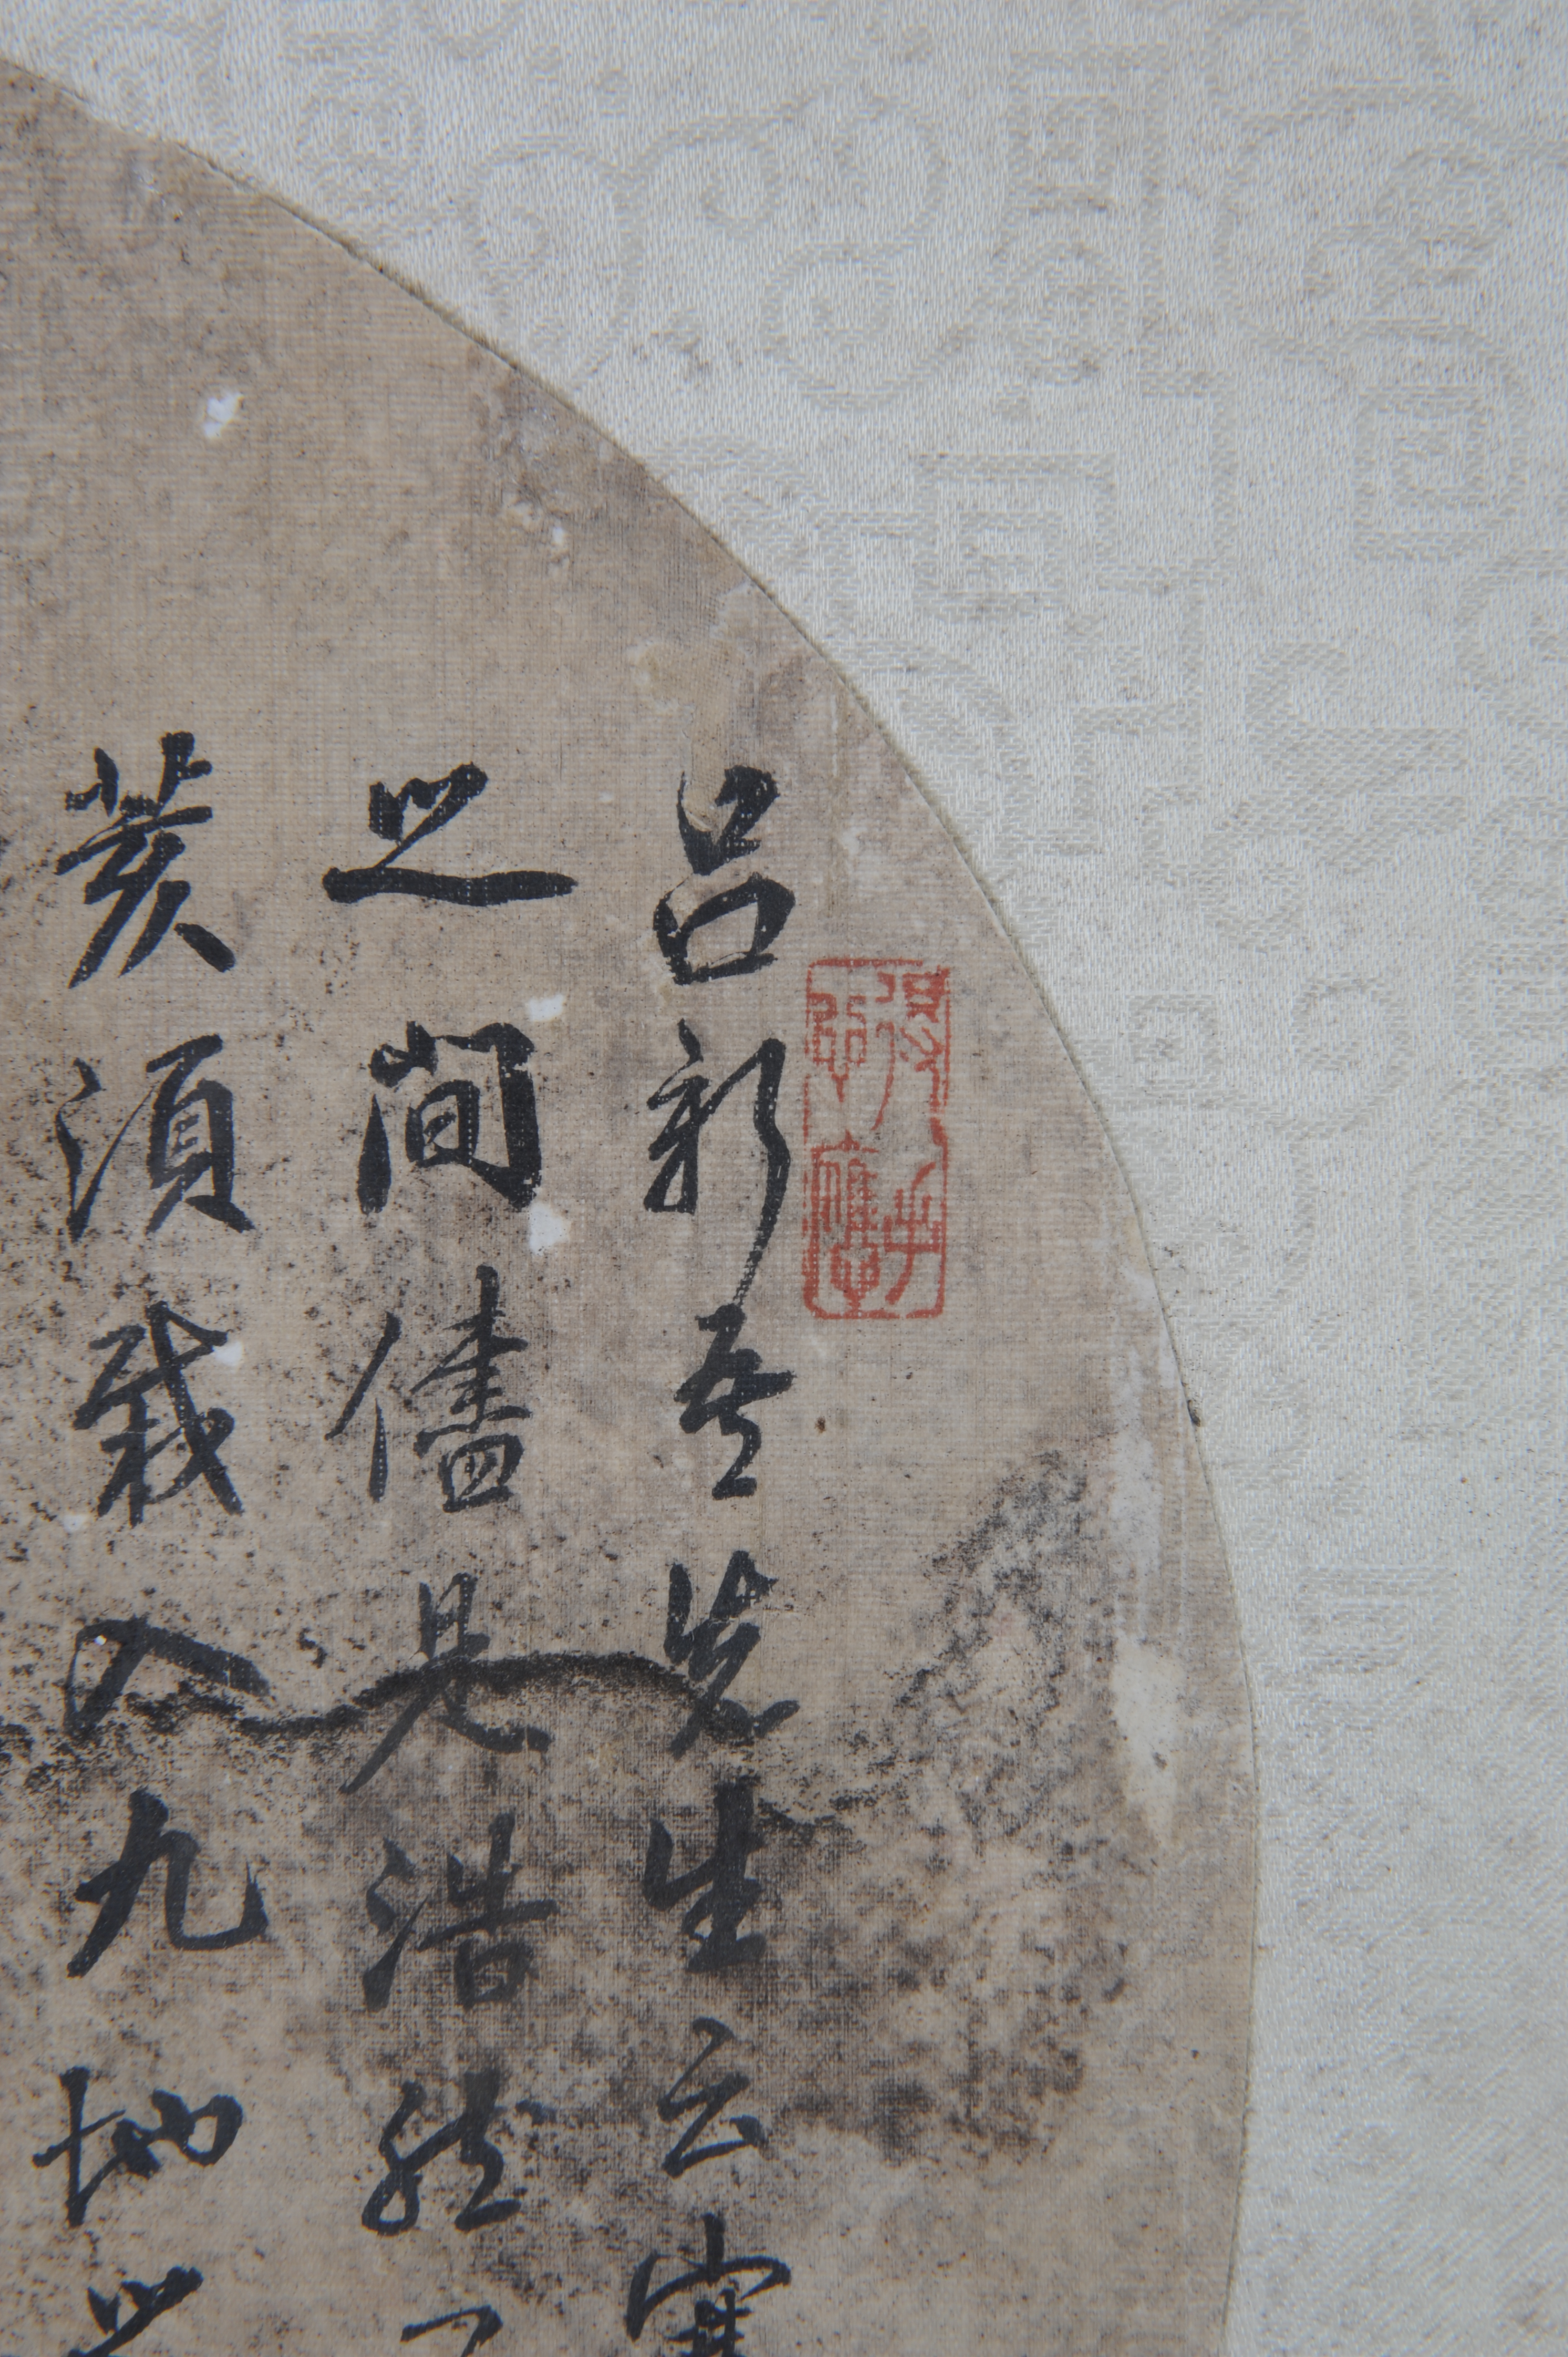 呂新吾先生云塞
之間儘是浩然
發須栽入九地之